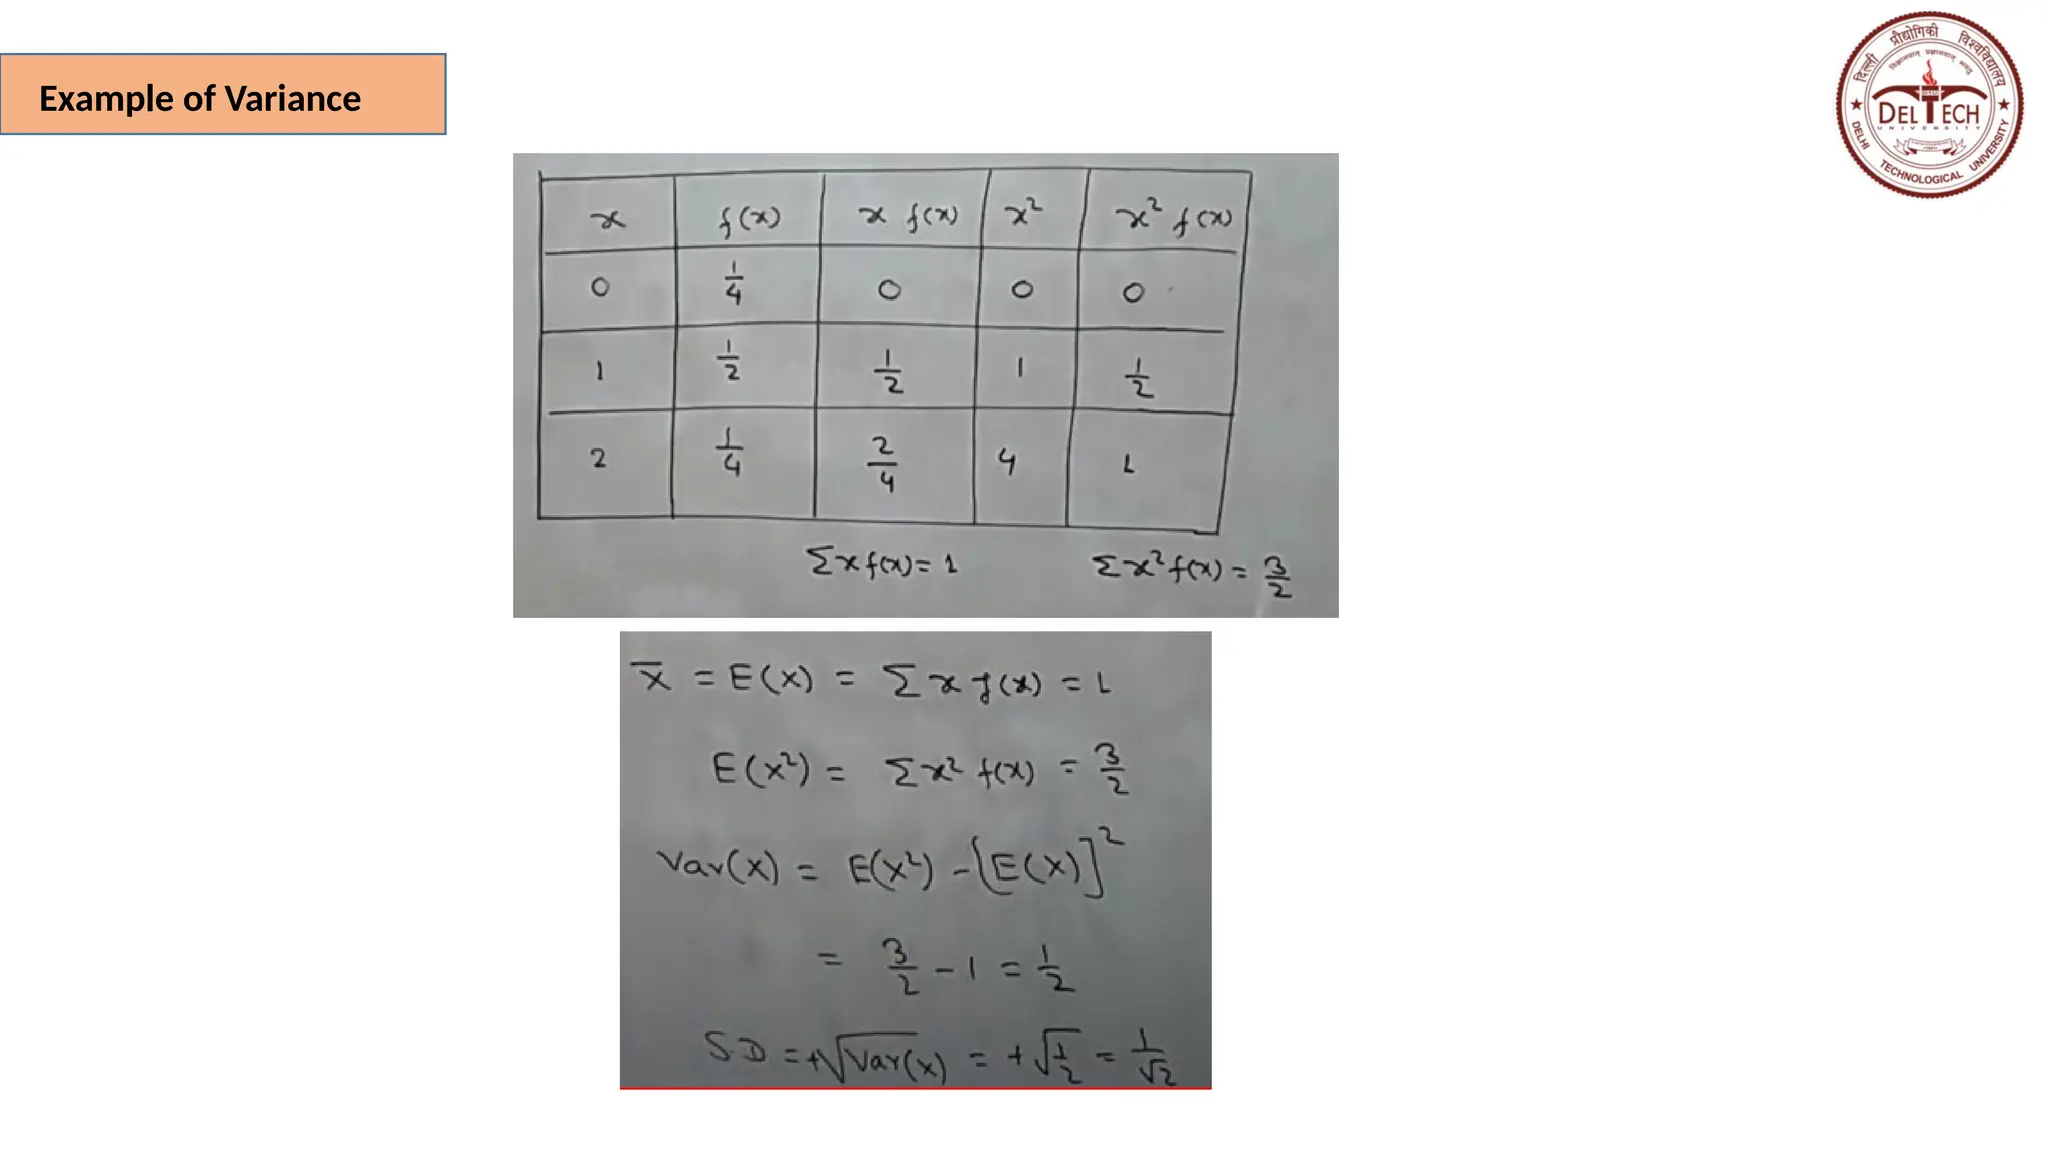 Example of Variance
दिल्ली प्रौद्योगिकी विश्वविद्यालय
DELTECH
UNIVERSITY
DELHI TECHNOLOGICAL UNIVERSITY
x f(x) x f(x) x² x² f(x)
0 1/4 0 0 0
1 1/2 1/2 1 1/2
2 1/4 2/4 4 1
Σxf(x)= 1 Σx²f(x) = 3/2
x̄ = E(x) = Σ x f(x) = 1
E(x²) = Σx² f(x) = 3/2
Var(x) = E(x²) - [E(x)]²
= 3/2 - 1 = 1/2
S.D = +√Var(x) = +√1/2 = 1/√2